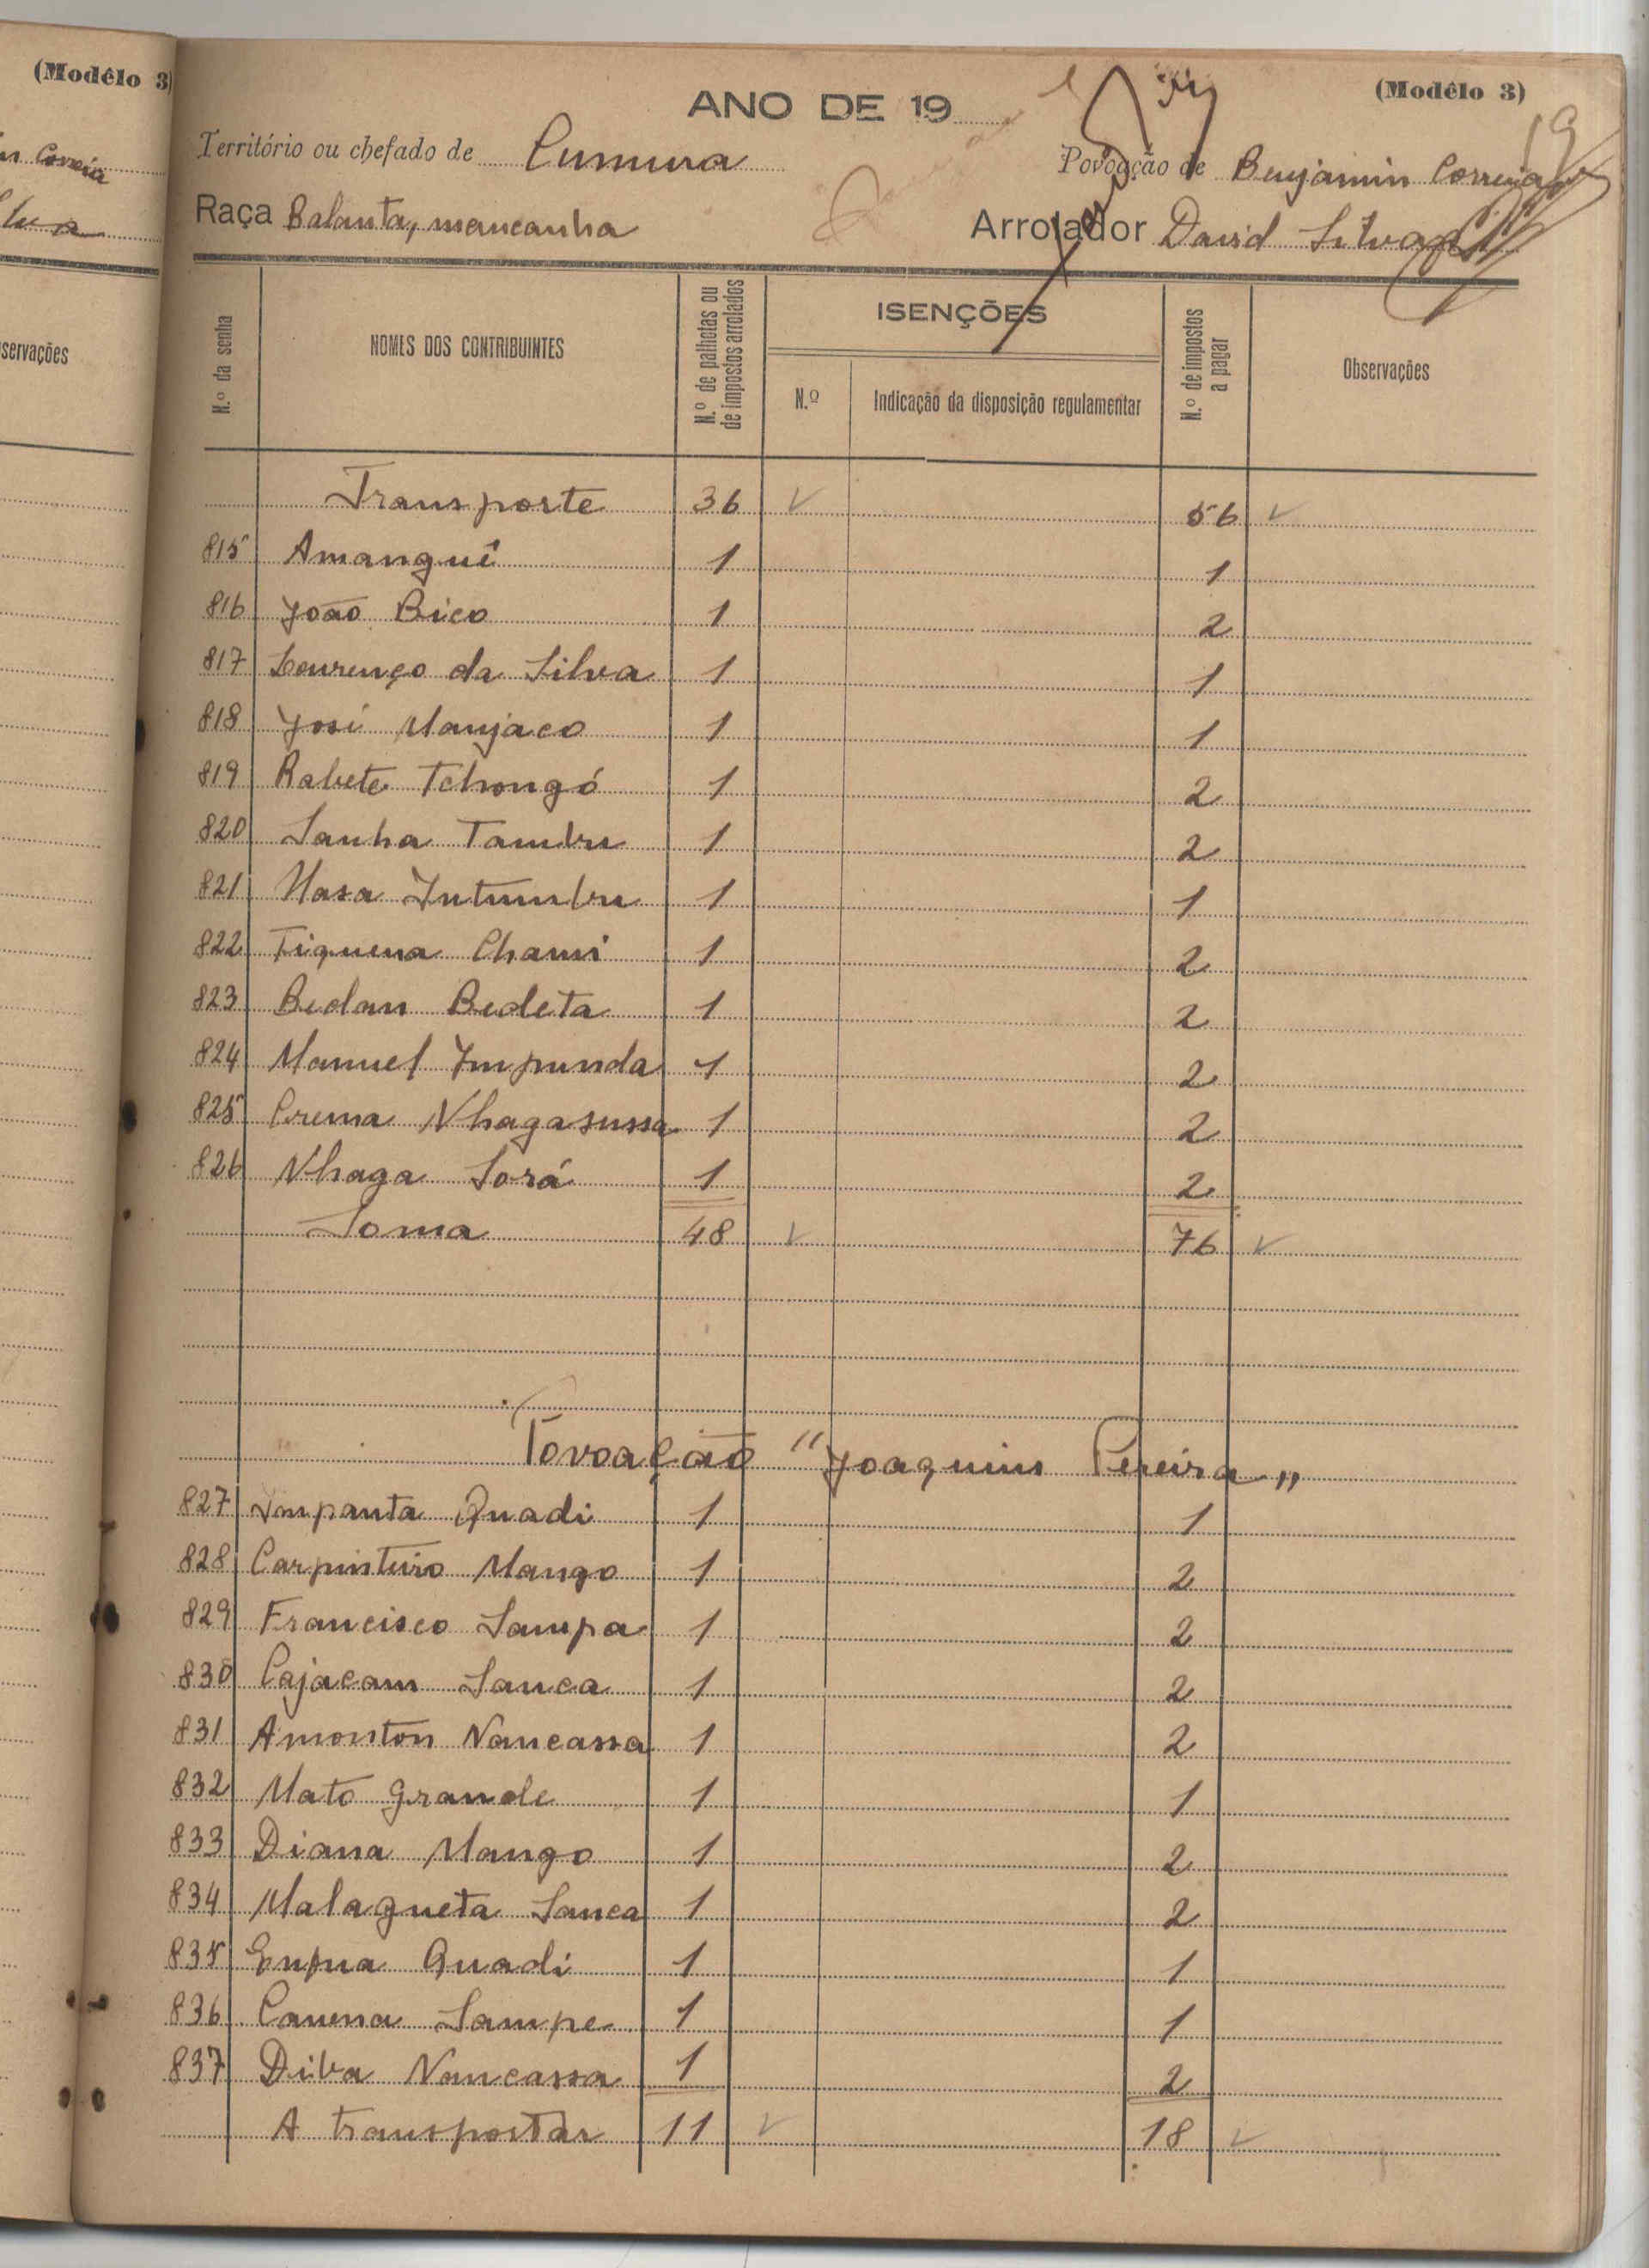 (Modêlo 3)
ANO DE 19
(Modêlo 3)
Correia
Território ou chefado de Cumura
Povoação de Benjamin Correia
19
Raça Balanta, mancanha
Arrolador David Silva
servações
N.º da senha
NOMES DOS CONTRIBUINTES
N.º de palhotas ou de impostos arrolados
ISENÇÕES
N.º
Indicação da disposição regulamentar
N.º de impostos a pagar
Observações
Transporte 36 ✓ 56 ✓
815 Amanguê 1 1
816 João Bico 1 2
817 Lourenço da Silva 1 1
818 José Manjaco 1 1
819 Rabete Tchongó 1 2
820 Sanha Tambu 1 2
821 Masa Intumbu 1 1
822 Tiquena Chami 1 2
823 Bidan Bedeta 1 2
824 Manuel Impunda 1 2
825 Crema Nhagasussa 1 2
826 Nhaga Sorá 1 2
Soma 48 ✓ 76 ✓
Povoação "Joaquim Pereira"
827 Impanta Quadi 1 1
828 Carpinteiro Mango 1 2
829 Francisco Sampa 1 2
830 Cajacam Sanca 1 2
831 Amonton Nancassa 1 2
832 Mato Grande 1 1
833 Diana Mango 1 2
834 Malagueta Sanca 1 2
835 Enpua Quadi 1 1
836 Canena Sampe 1 1
837 Diba Nancassa 1 2
A transportar 11 ✓ 18 ✓